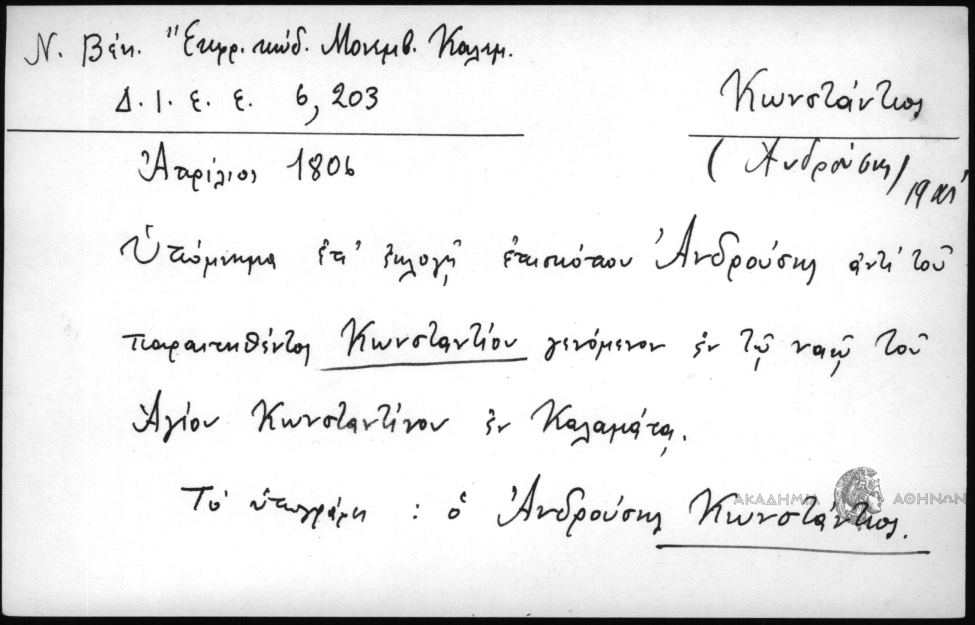 Ν. Βέη. "Εκκρ. κώδ. Μονεμβ. Καλαμ.
Δ. Ι. Ε. Ε. 6, 203
Κωνστάντιος
Ἀπρίλιος 1806
(Ἀνδρούσης) 19 αι'
Ὑπόμνημα ἐπί ἐκλογῇ ἐπισκόπου Ἀνδρούσης ἀντί τοῦ
παραιτηθέντος Κωνσταντίου γενόμενον ἐν τῷ ναῷ τοῦ
Ἁγίου Κωνσταντίνου ἐν Καλαμάτᾳ.
Τό ὑπογράφει : ὁ Ἀνδρούσης Κωνστάντιος.
ΑΚΑΔΗΜΙΑ ΑΘΗΝΩΝ